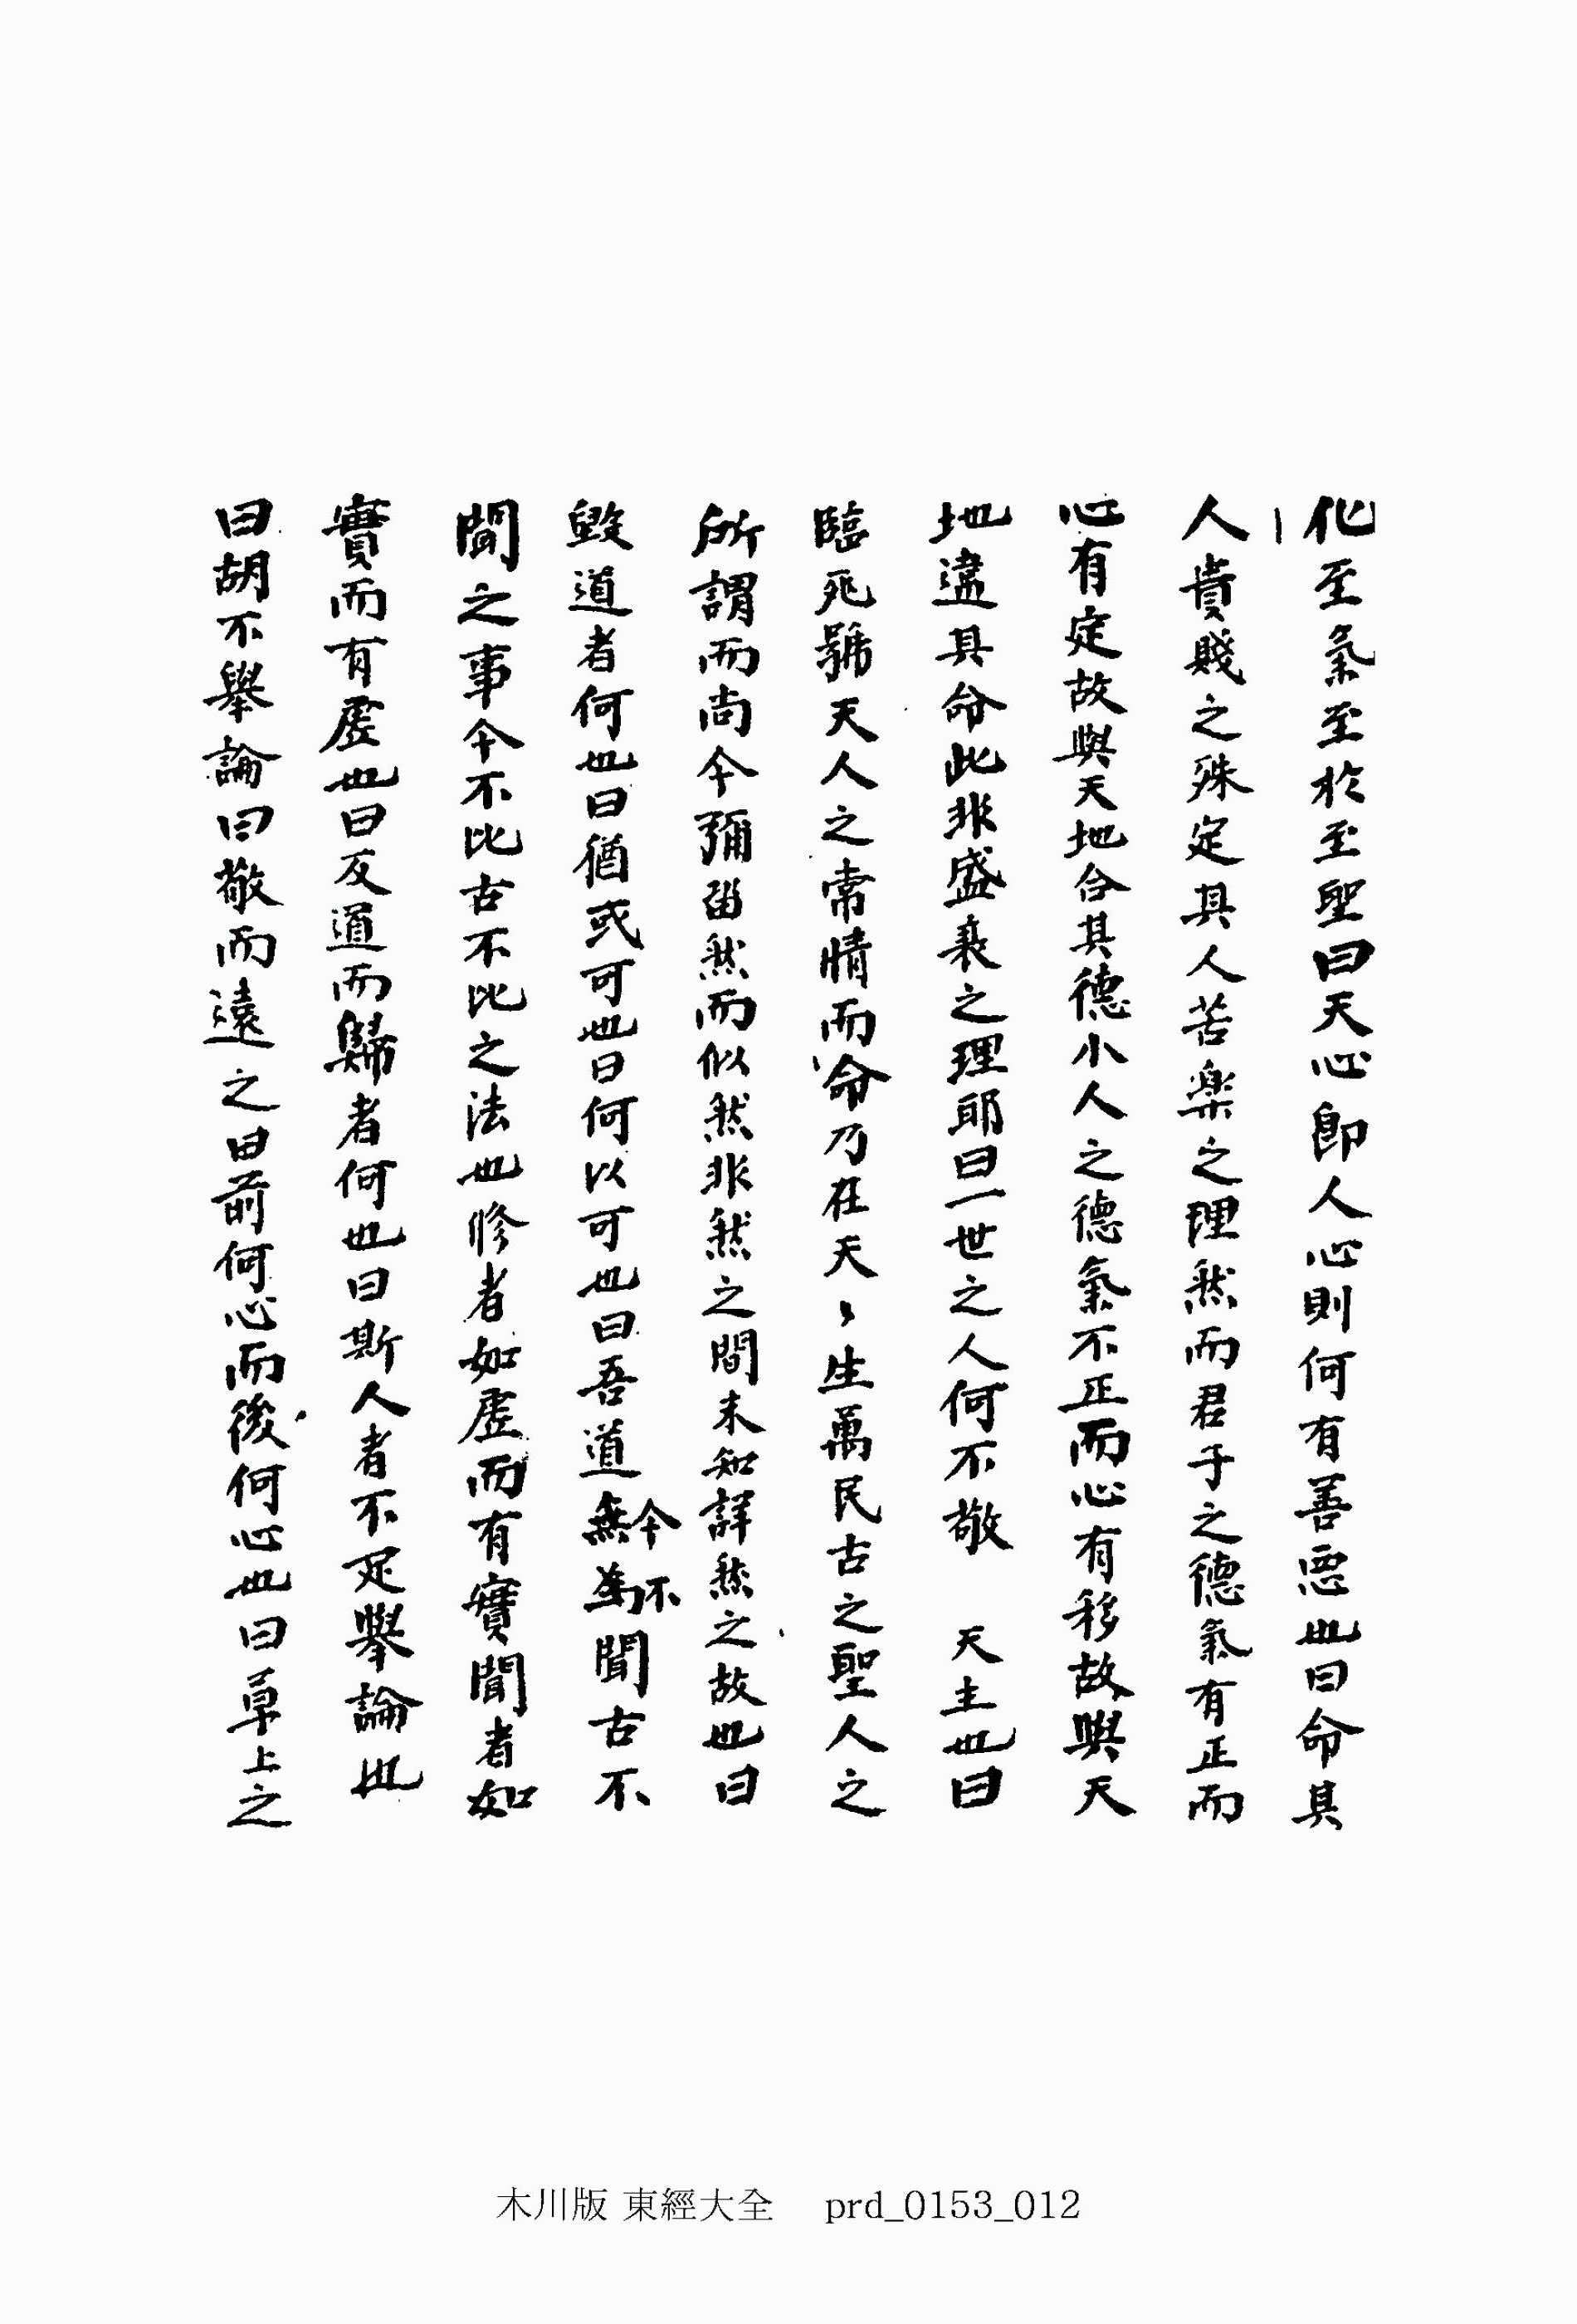 化至氣至於至聖曰天心卽人心則何有善惡也曰命其
人貴賤之殊定其人苦楽之理然而君子之德氣有正而
心有定故與天地合其德小人之德氣不正而心有移故與天
地違其命此非盛衰之理耶曰一世之人何不敬 天主也曰
臨死號天人之常情而命乃在天〻生萬民古之聖人之
所謂而尚今彌留然而似然非然之間未知詳然之故也曰
毁道者何也曰猶或可也曰何以可也曰吾道無今爲不聞古不
聞之事今不比古不比之法也修者如虛而有實聞者如
實而有虛也曰反道而歸者何也曰斯人者不足擧論也
曰胡不擧論曰敬而遠之曰前何心而後何心也曰草上之
木川版 東經大全 prd_0153_012